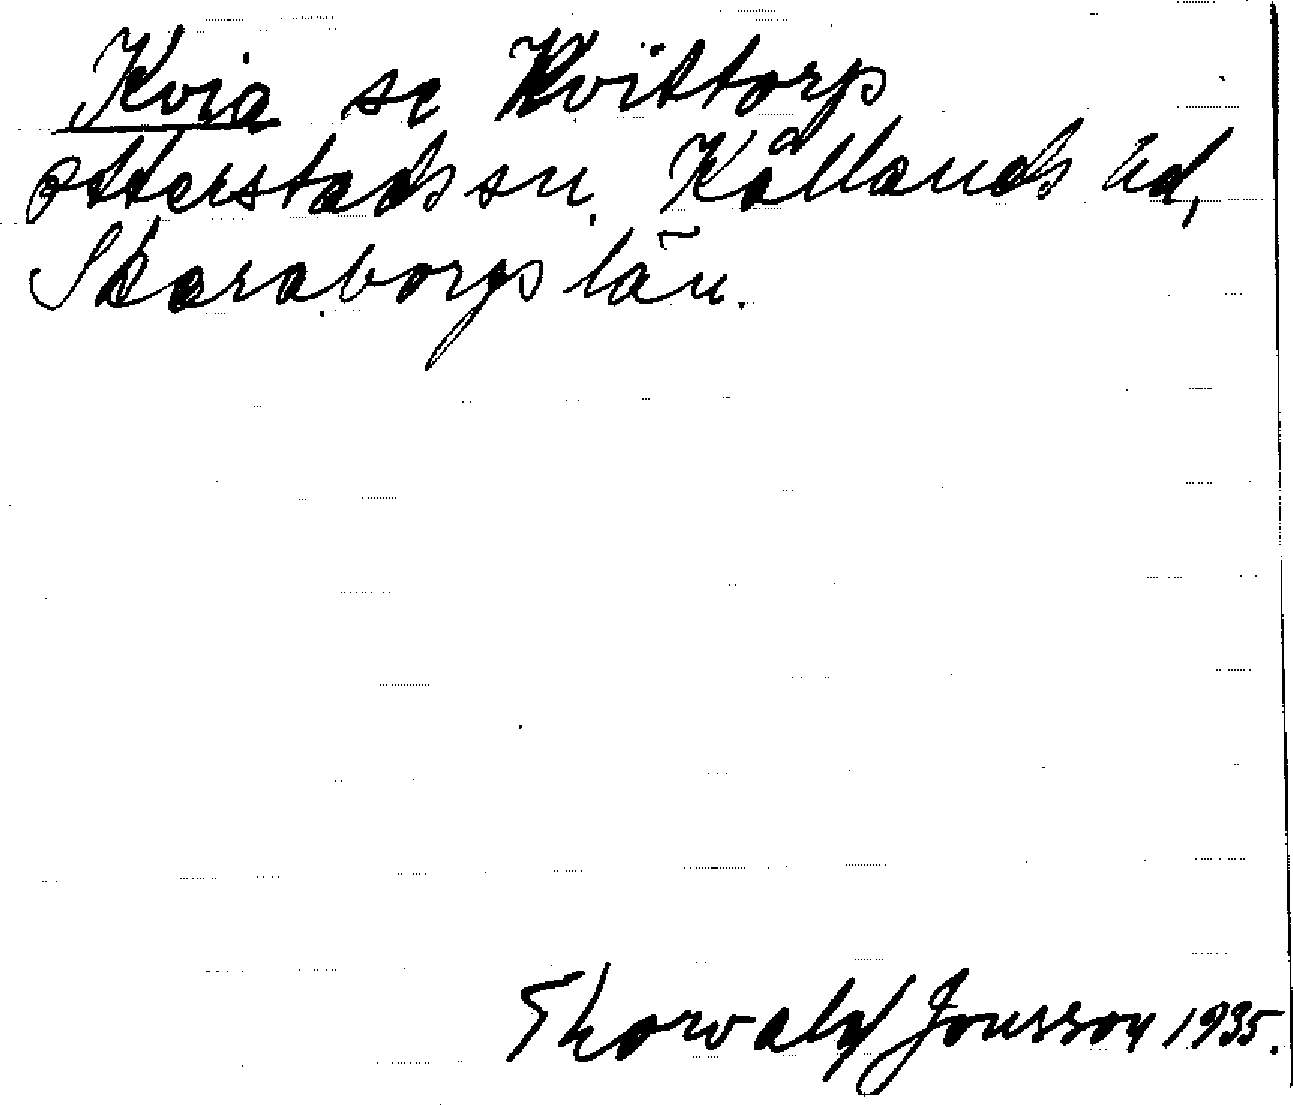 Kvia se Kvittorp
Otterstads sn. Kållands hd,
Skaraborgs län.
Thorvald Jonsson 1935.